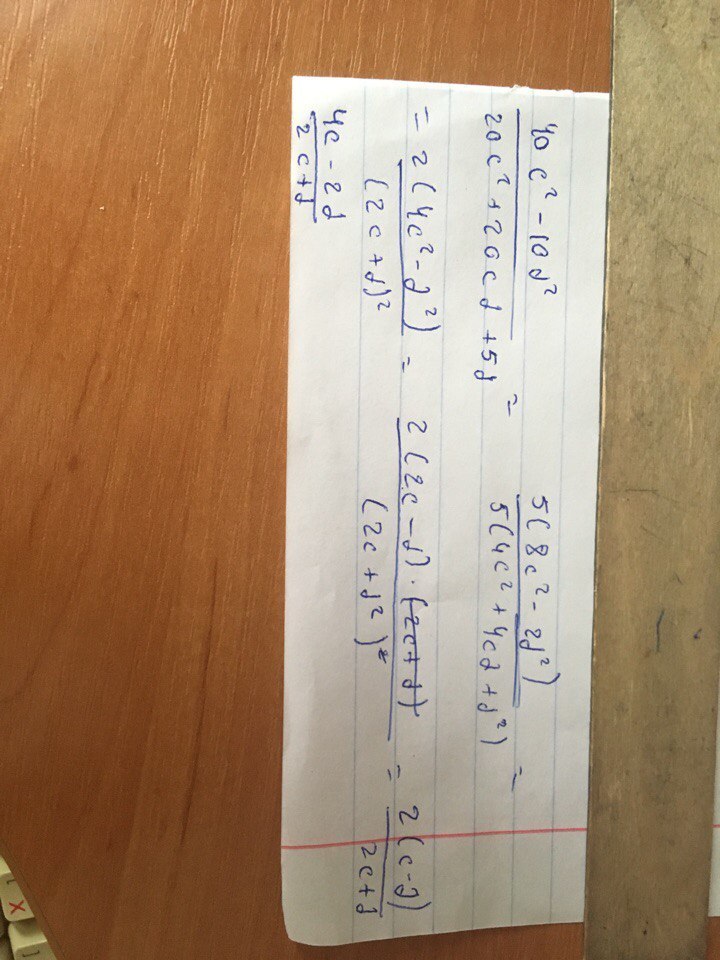 40c² - 10d² / 20c² + 20cd + 5d = 5(8c² - 2d²) / 5(4c² + 4cd + d²) =
= 2(4c² - d²) / (2c + d)² = 2(2c - d) · (2c + d) / (2c + d²)² = 2(c - d) / 2c + d
4c - 2d / 2c + d